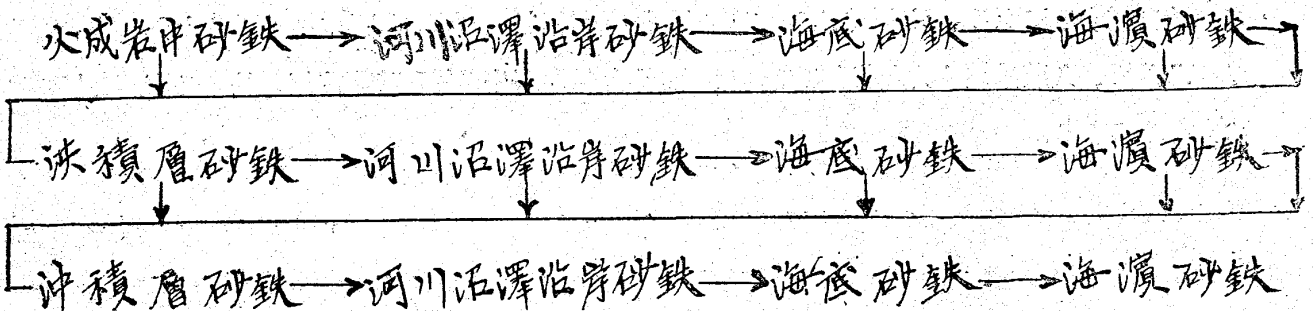 火成岩中砂鉄→河川沼澤沿岸砂鉄→海底砂鉄→海濱砂鉄→
洪積層砂鉄→河川沼澤沿岸砂鉄→海底砂鉄→海濱砂鉄→
沖積層砂鉄→河川沼澤沿岸砂鉄→海底砂鉄→海濱砂鉄